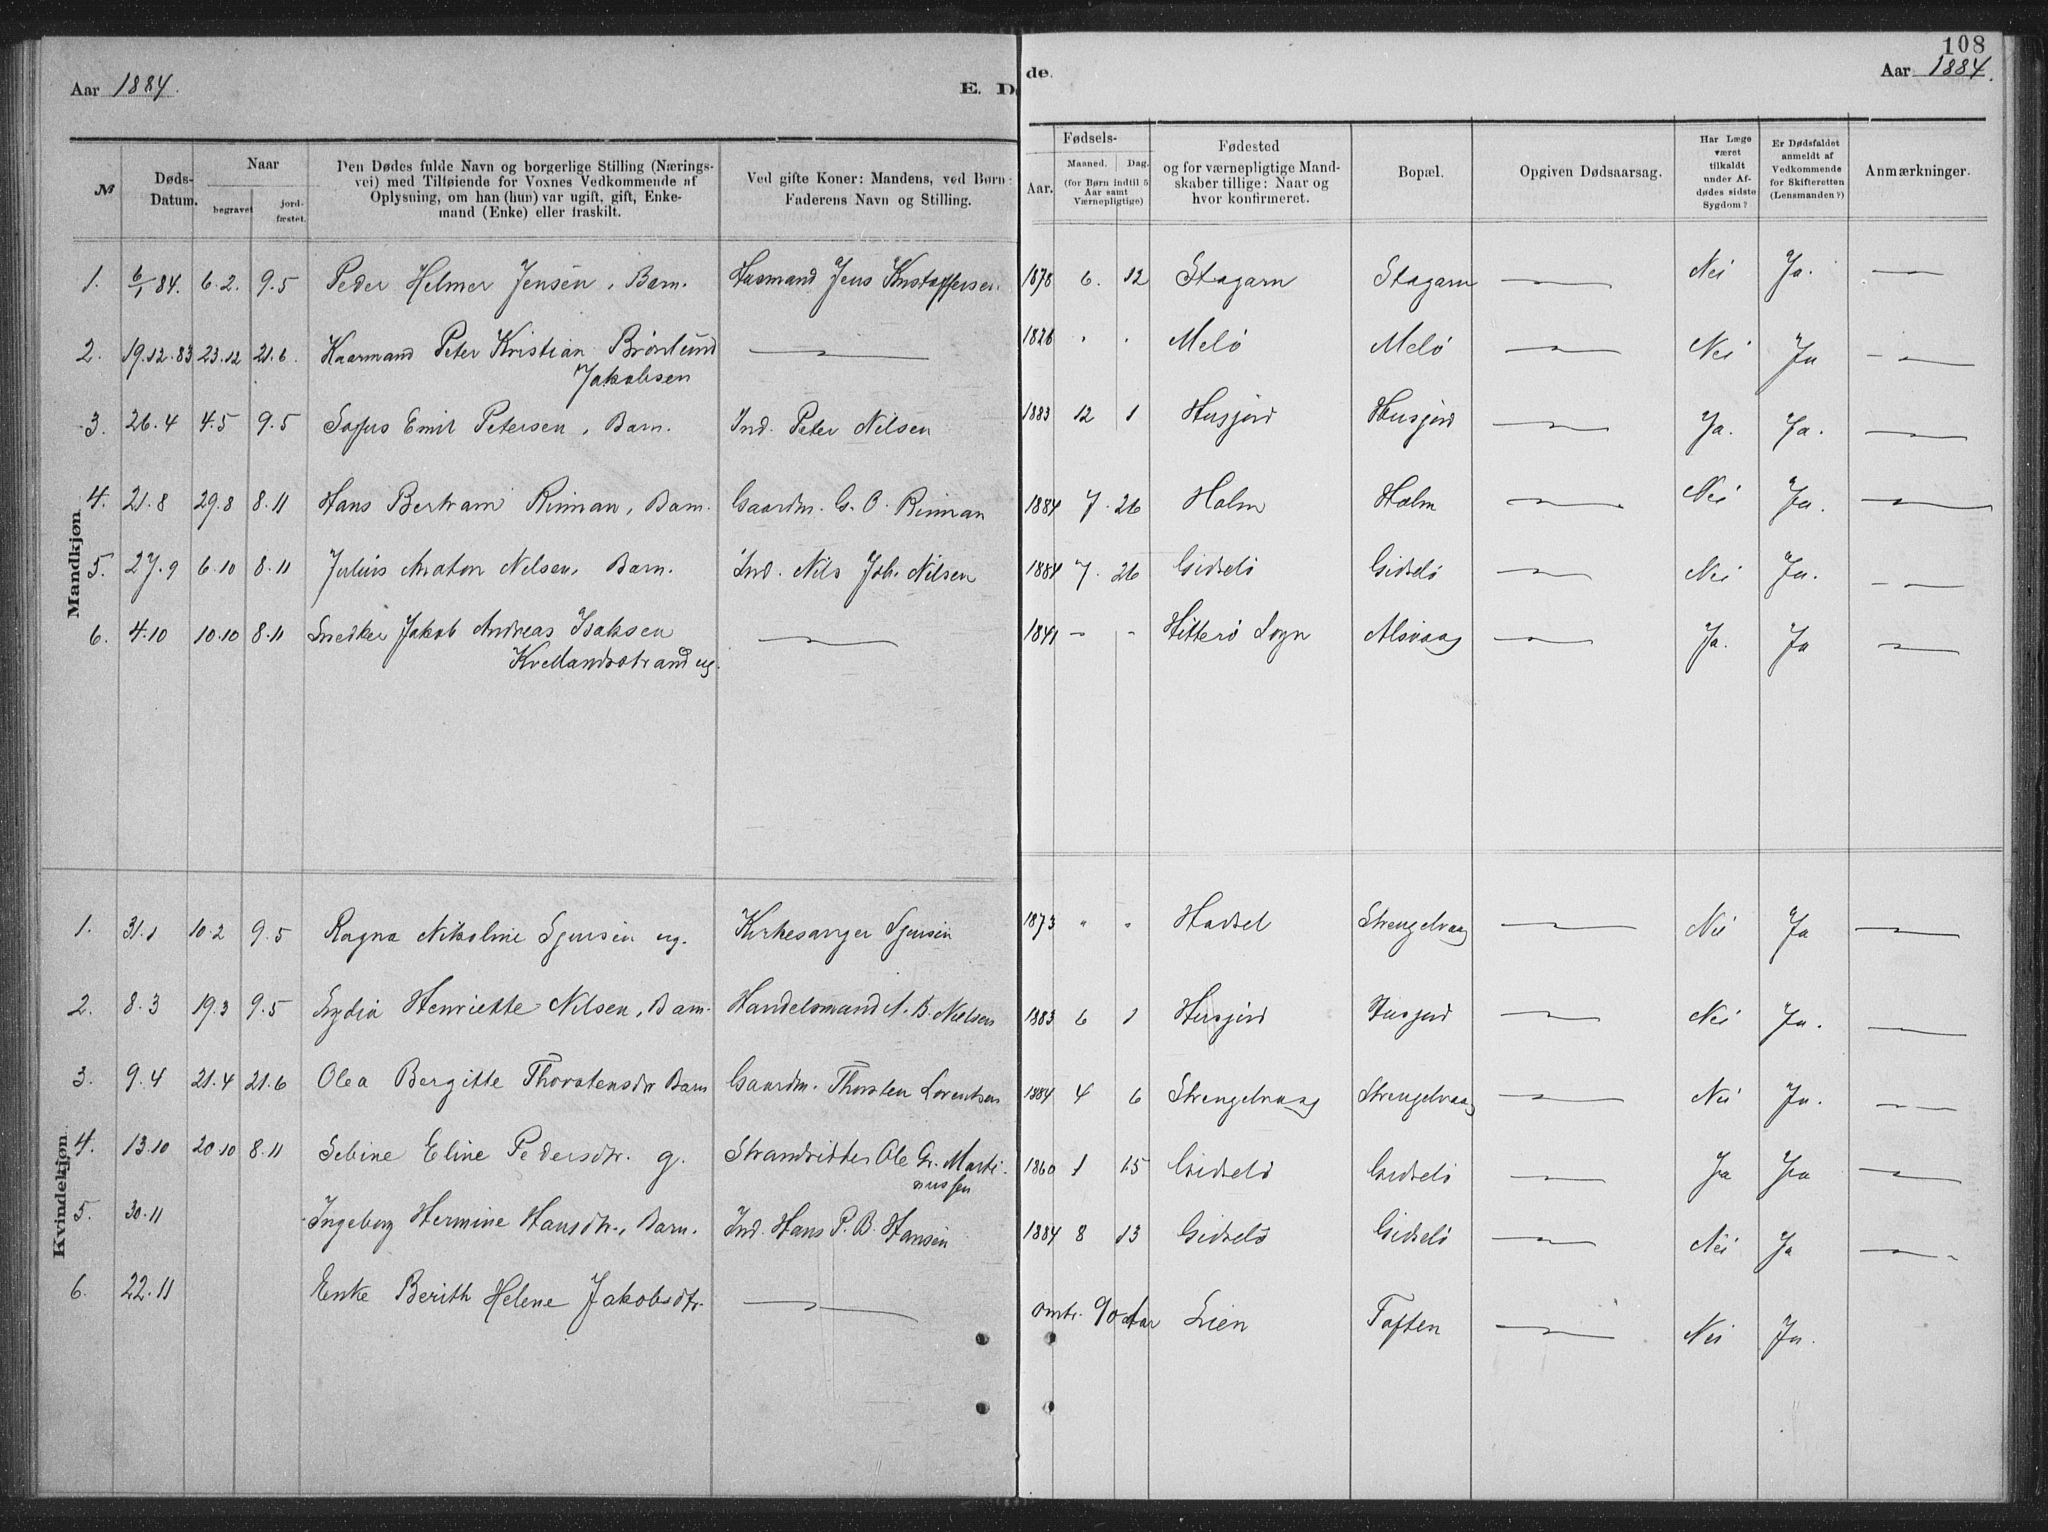 108
Aar 1884. E. Dø
de. Aar 1884.
№
Døds-
Datum.
Naar
begravet
jord-
fæstet.
Den Dødes fulde Navn og borgerlige Stilling (Nærings-
vei) med Tilføiende for Voxnes Vedkommende af
Oplysning, om han (hun) var ugift, gift, Enke-
mand (Enke) eller fraskilt.
Ved gifte Koner: Mandens, ved Børn:
Faderens Navn og Stilling.
Fødsels-
Aar.
Maaned. Dag.
(for Børn indtil 5
Aar samt
Værnepligtige)
Fødested
og for værnepligtige Mand-
skaber tillige: Naar og
hvor konfirmeret.
Bopæl.
Opgiven Dødsaarsag.
Har Læge
været
tilkaldt
under Af-
dødes sidste
Sygdom?
Er Dødsfaldet
anmeldt af
Vedkommende
for Skifteretten
(Lensmanden?)
Anmærkninger.
Mandkjøn.
1. 6/1 84. 6.2. 9.5 Peder Helmer Jensen, Barn. Jens 1878 6. 12 Stagarn Stagarn — Nei Ja. —
2. 19.12.83 23.12 21.6. Kaarmand Peter Kristian Brønlund — 1826 " " Melø Melø — Nei Ja —
Jakobsen
3. 26.4 4.5 9.5 Sofus Emil Petersen, Barn. Ind. Peter Nilsen 1883 12 1 Husjord Husjord — Ja. Ja. —
4. 21.8 29.8 8.11 Hans Bertram Rinman, Barn. Gaardm. G. O. Rinman 1884 7. 26 Holm Holm — Nei Ja. —
5. 27.9 6.10 8.11 Julius Anaton Nilsen, Barn. Ind. Nils Joh. Nilsen 1884 7. 26 Gidslø Gidslø — Nei Ja. —
6. 4.10 10.10 8.11 Snedker Jakob Andreas Isaksen — 1841 - - Hitterø Sogn Alsvaag — Ja. Ja —
Kvellandsstrand ug.
Kvindekjøn.
1. 31.1 10.2 9.5 Ragna Nikoline Sjursen ug. Kirkesanger Sjursen 1873 " " Hadsel Strengelvaag — Nei Ja —
2. 8.3 19.3 9.5 Lydia Henriette Nilsen, Barn. Handelsmand A. B. Nielsen 1883 6 1 Husjord Husjord — Nei Ja. —
3. 9.4 21.4 21.6 Olea Bergitte Thorstensdtr Barn Gaardm. Thorsten Lorentsen 1884 4 6 Strengelvaag Strengelvaag — Nei Ja. —
4. 13.10 20.10 8.11 Sebine Eline Pedersdtr. g. Strandsidder Ole Gr. Marti- 1860 1 15 Gidselø Gidselø — Ja Ja —
nussen
5. 30.11 Ingeborg Hermine Hansdtr., Barn. Ind. Hans P. B. Hansen 1884 8 13 Gidselø Gidselø — Nei Ja —
6. 22.11 Enke Berith Helene Jakobsdtr. — omtr. 90 Aar Lien Toften — Nei Ja.